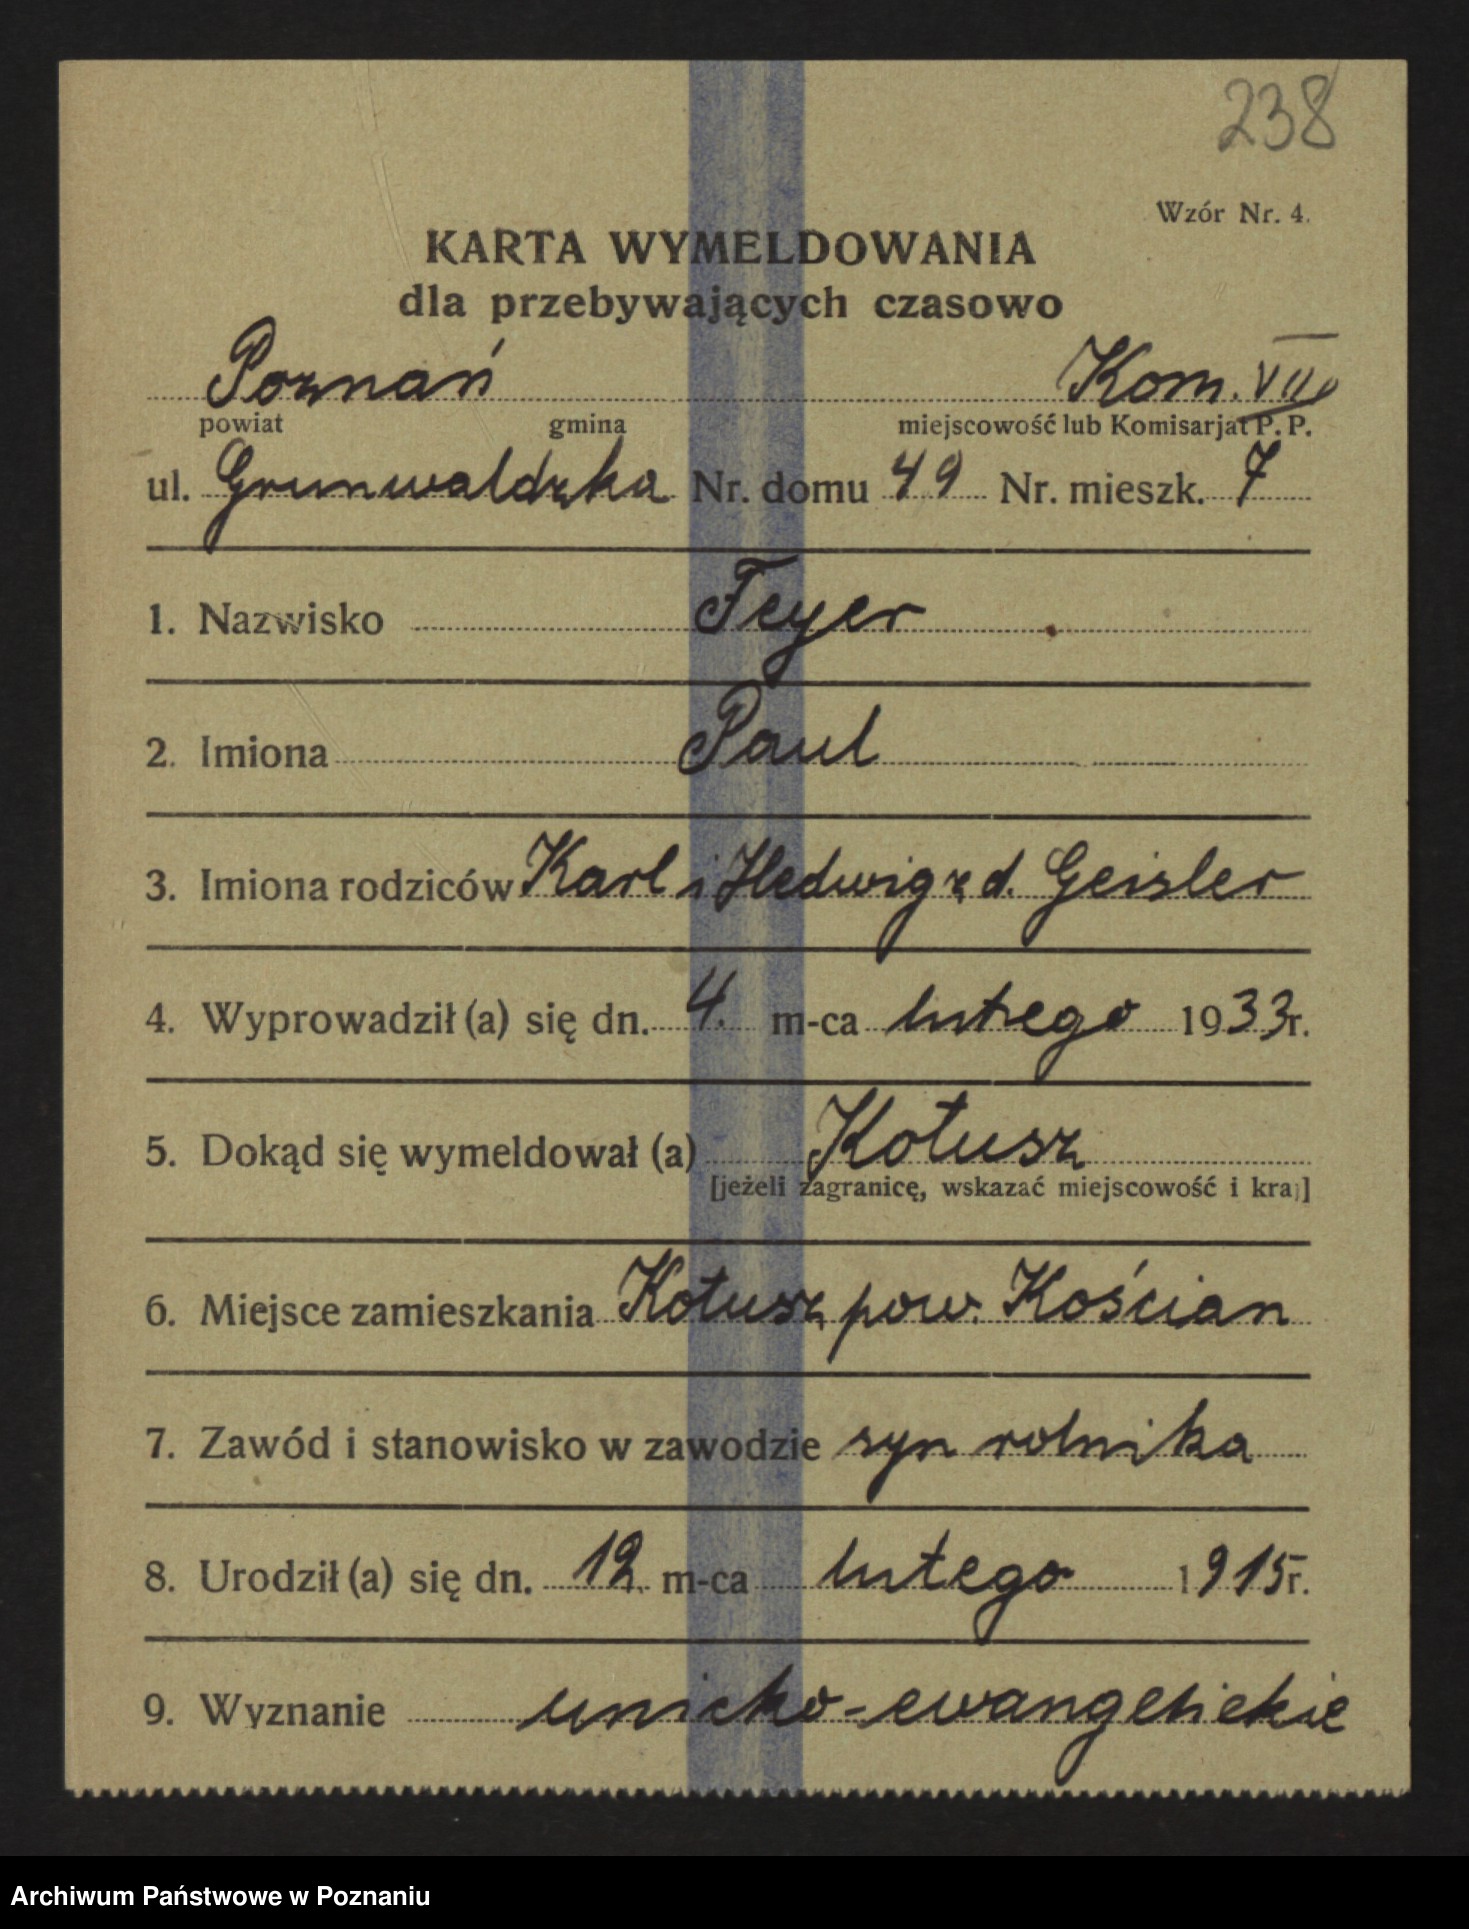 238
Wzór Nr. 4.
KARTA WYMELDOWANIA
dla przebywających czasowo
Poznań Kom. VIII
powiat gmina miejscowość lub Komisarjat P. P.
ul. Grunwaldzka Nr. domu 49 Nr. mieszk. 7
1. Nazwisko Feyer
2. Imiona Paul
3. Imiona rodziców Karl i Hedwig zd. Geisler
4. Wyprowadził (a) się dn. 4. m-ca lutego 1933 r.
5. Dokąd się wymeldował (a) Kotusz
[jeżeli zagranicę, wskazać miejscowość i kraj]
6. Miejsce zamieszkania Kotusz, pow. Kościan
7. Zawód i stanowisko w zawodzie syn rolnika
8. Urodził (a) się dn. 12. m-ca lutego 1915 r.
9. Wyznanie unicko-ewangelickie
Archiwum Państwowe w Poznaniu